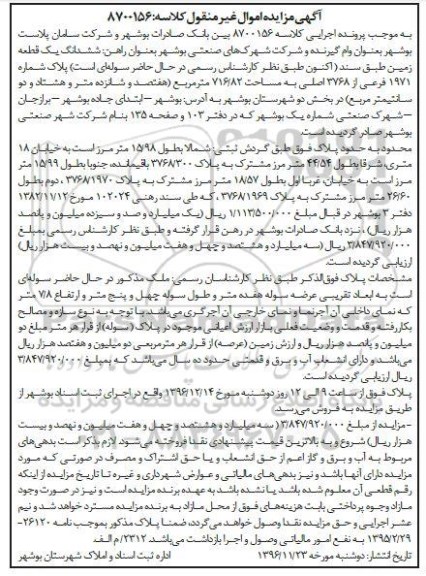 آگهی مزایده اموال غیر منقول کلاسه: ۸۷۰۰۱۵۶
به موجب پرونده اجرایی کلاسه ۸۷۰۰۱۵۶ بین بانک صادرات بوشهر و شرکت سامان پلاست
بوشهر بعنوان وام گیرنده و شرکت شهرک‌های صنعتی بوشهر بعنوان راهن: ششدانگ یک قطعه
زمین طبق سند (اکنون طبق نظر کارشناس رسمی در حال حاضر سوله‌ای است) پلاک شماره
۱۹۷۱ فرعی از ۳۷۶۸ اصلی به مساحت ۷۱۶/۸۲ مترمربع (هفتصد و شانزده متر و هشتاد و دو
سانتیمتر مربع) در بخش دو شهرستان بوشهر به آدرس: بوشهر – ابتدای جاده بوشهر – برازجان
– شهرک صنعتی شماره یک بوشهر که در دفتر ۱۰۳ و صفحه ۱۳۵ بنام شرکت شهر صنعتی
بوشهر صادر گردیده است.
محدود به حدود پلاک فوق طبق گردش ثبتی: شمالا بطول ۱۵/۹۸ متر مرز است به خیابان ۱۸
متری، شرقا بطول ۴۴/۵۴ متر مرز مشترک به پلاک ۳۷۶۸/۳۰۰ باقیمانده، جنوبا بطول ۱۵/۹۹ متر
مرز است به خیابان، غربا اول بطول ۱۸/۵۷ متر مرز مشترک به پلاک ۳۷۶۸/۱۹۷۰، دوم بطول
۲۶/۶۰ متر مرز مشترک به پلاک ۳۷۶۸/۱۹۶۹، که طی سند رهنی ۱۰۲۰۲۴ مورخ ۱۳۸۲/۱۱/۱۲
دفتر ۳ بوشهر در قبال مبلغ ۱/۱۱۳/۵۰۰/۰۰۰ ریال (یک میلیارد و صد و سیزده میلیون و پانصد
هزار ریال)، نزد بانک صادرات بوشهر در رهن قرار گرفته و طبق نظر کارشناس رسمی بمبلغ
۳/۸۴۷/۹۲۰/۰۰۰ ریال (سه میلیارد و هشتصد و چهل و هفت میلیون و نهصد و بیست هزار ریال)
ارزیابی گردیده است.
مشخصات پلاک فوق‌الذکر طبق نظر کارشناسان رسمی: ملک مذکور در حال حاضر سوله‌ای
است به ابعاد تقریبی عرضه سوله هفده متر و طول سوله چهل و پنج متر و ارتفاع ۷/۸ متر
که نمای داخلی آن آجرنما و نمای خارجی آن آجرگری می‌باشد. با توجه به نوع سازه و مصالح
بکار رفته و قدمت و وضعیت فعلی بازار ارزش اعیانی موجود در پلاک (سوله) از قرار هر متر مبلغ دو
میلیون و پانصد هزار ریال و ارزش زمین (عرصه) از قرار هر مترمربعی دو میلیون و هفتصد هزار ریال
می‌باشد و دارای انشعاب آب و برق و قدمتی حدود ده سال می‌باشد که بمبلغ ۳/۸۴۷/۹۲۰/۰۰۰
ریال ارزیابی گردیده است.
پلاک فوق از ساعت ۹ الی ۱۲ روز دوشنبه مورخ ۱۳۹۶/۱۲/۱۴ واقع در اجرای ثبت اسناد بوشهر از
طریق مزایده به فروش می‌رسد.
-مزایده از مبلغ ۳/۸۴۷/۹۲۰/۰۰۰ (سه میلیارد و هشتصد و چهل و هفت میلیون و نهصد و بیست
هزار ریال) شروع و به بالاترین قیمت پیشنهادی نقدا فروخته می‌شود. لازم بذکر است بدهی‌های
مربوط به آب و برق و گاز اعم از حق انشعاب و یا حق اشتراک و مصرف در صورتی که مورد
مزایده دارای آنها باشد و نیز بدهی‌های مالیاتی و عوارض شهرداری و غیره تا تاریخ مزایده از اینکه
رقم قطعی آن معلوم شده باشد یا نشده باشد به عهده برنده مزایده است و نیز در صورت وجود
مازاد وجوه پرداختی بابت هزینه‌های فوق از محل مازاد به برنده مزایده مسترد خواهد شد و نیم
عشر اجرایی و حق مزایده نقدا وصول خواهد می‌گردد، ضمنا پلاک مذکور بموجب نامه ۲۶۱۲۰-
۱۳۹۵/۲/۲۹ به نفع امور مالیاتی وصول و اجرا بازداشت می‌باشد. ۲۳۱۲/م الف.
تاریخ انتشار: دوشنبه مورخه ۱۳۹۶/۱۱/۲۳ اداره ثبت اسناد و املاک شهرستان بوشهر